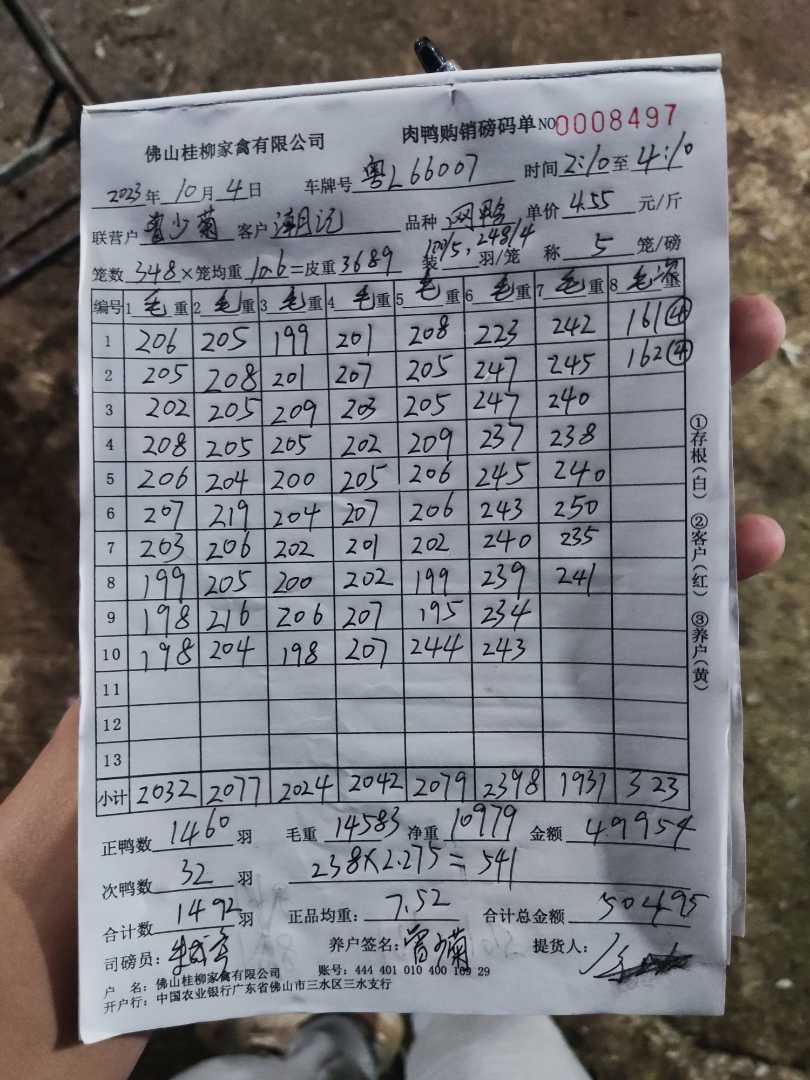 佛山桂柳家禽有限公司 肉鸭购销磅码单 NO 0008497
2023年10月4日 车牌号 粤L66007 时间 2:10 至 4:10
联营户 曾少菊 客户 潮记 品种 网鸭 单价 4.55 元/斤
笼数 348 × 笼均重 10.6 = 皮重 3689 装 100/5, 248/4 羽/笼 称 5 笼/磅
编号 1 毛重 2 毛重 3 毛重 4 毛重 5 毛重 6 毛重 7 毛重 8 毛重
1 206 205 199 201 208 223 242 161④
2 205 208 201 207 205 247 245 162④
3 202 205 209 203 205 247 240
4 208 205 205 202 209 237 238
5 206 204 200 205 206 245 240
6 207 219 204 207 206 243 250
7 203 206 202 201 202 240 235
8 199 205 200 202 199 239 241
9 198 216 206 207 195 234
10 198 204 198 207 244 243
11
12
13
小计 2032 2077 2024 2042 2079 2398 1931 323
①存根(白) ②客户(红) ③养户(黄)
正鸭数 1460 羽 毛重 14583 净重 10979 金额 49954
次鸭数 32 羽 238×2.275=541
合计数 1492 羽 正品均重: 7.52 合计总金额 50495
司磅员: 养户签名: 曾少菊 提货人:
户 名: 佛山桂柳家禽有限公司 账号: 444 401 010 400 169 29
开户行: 中国农业银行广东省佛山市三水区三水支行